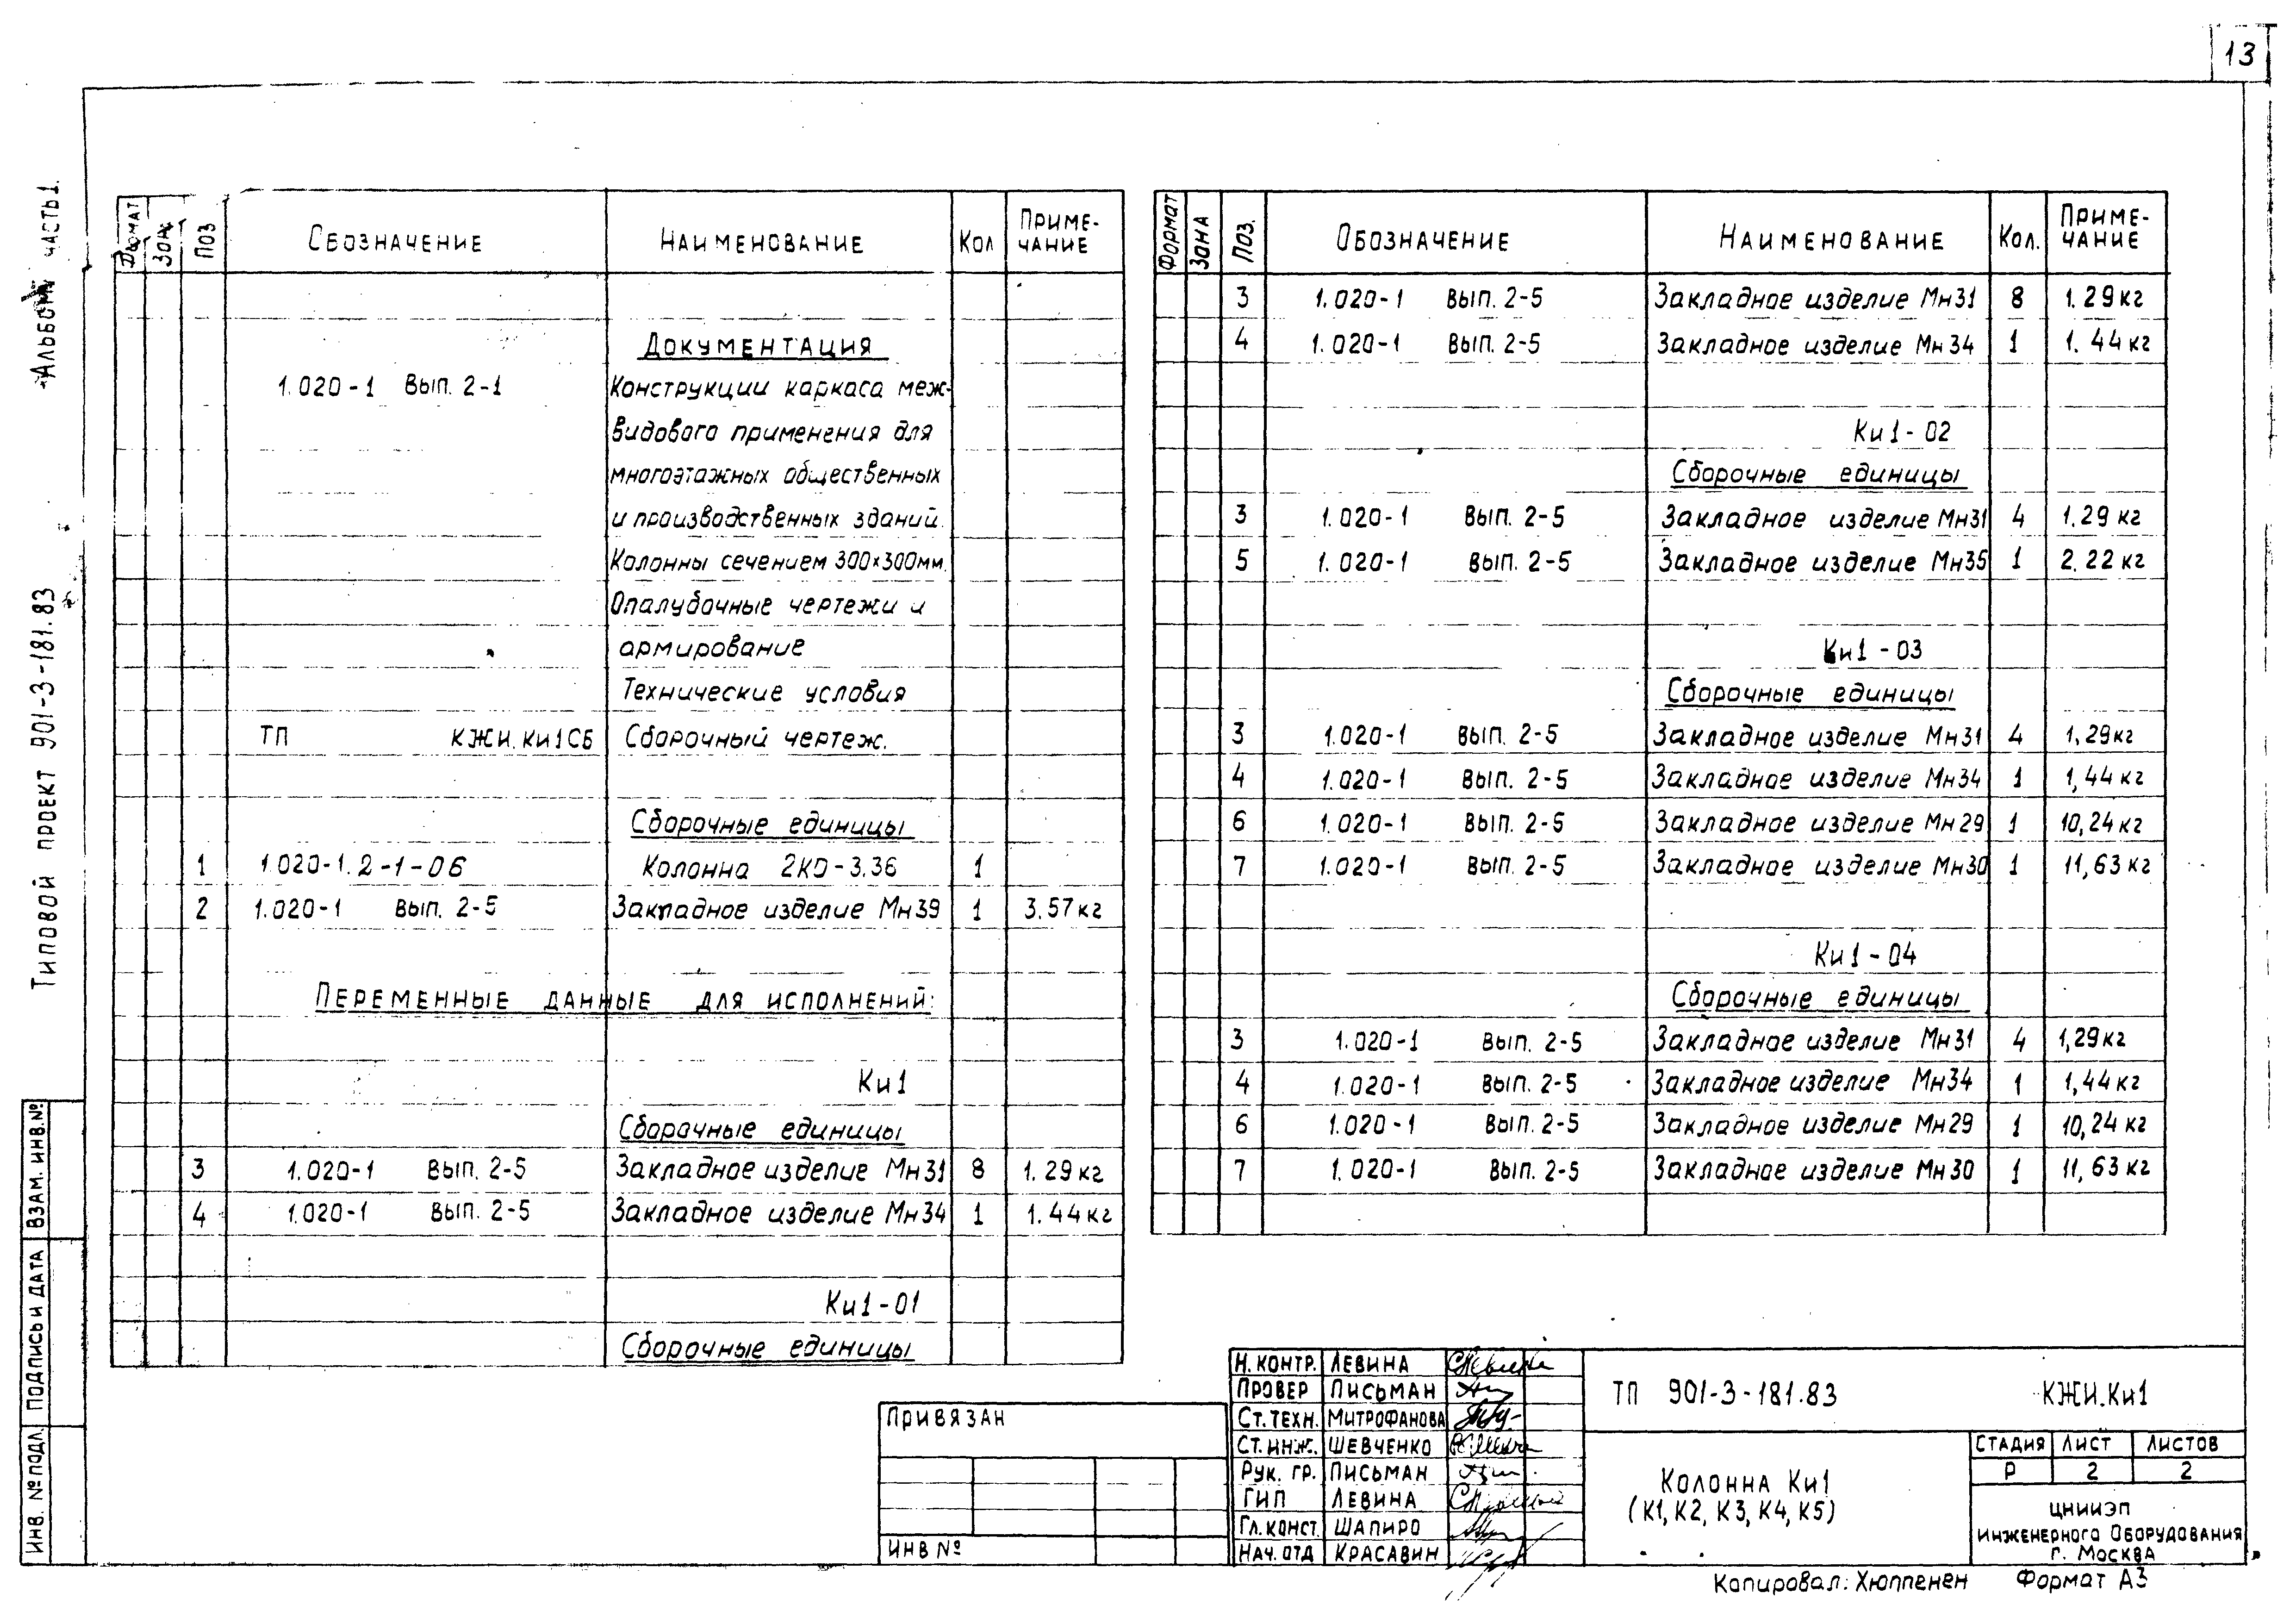 13
Альбом
часть 1.
Типовой проект 901-3-181.83
Взам. инв. №
Подпись и дата
Инв. № подл.
Формат Зона Поз Обозначение Наименование Кол Приме-
чание
Документация
1.020-1 Вып. 2-1 Конструкции каркаса меж-
видового применения для
многоэтажных общественных
и производственных зданий.
Колонны сечением 300×300мм.
Опалубочные чертежи и
армирование
Технические условия
ТП КЖИ.Ки1СБ Сборочный чертеж.
Сборочные единицы
1 1.020-1.2-1-06 Колонна 2КО-3.36 1
2 1.020-1 Вып. 2-5 Закладное изделие Мн39 1 3.57кг
Переменные данные для исполнений:
Ки1
Сборочные единицы
3 1.020-1 Вып. 2-5 Закладное изделие Мн31 8 1.29кг
4 1.020-1 Вып. 2-5 Закладное изделие Мн34 1 1.44кг
Ки1-01
Сборочные единицы
Формат Зона Поз. Обозначение Наименование Кол. Приме-
чание
3 1.020-1 Вып. 2-5 Закладное изделие Мн31 8 1.29кг
4 1.020-1 Вып. 2-5 Закладное изделие Мн34 1 1.44кг
Ки1-02
Сборочные единицы
3 1.020-1 Вып. 2-5 Закладное изделие Мн31 4 1.29кг
5 1.020-1 Вып. 2-5 Закладное изделие Мн35 1 2.22кг
Ки1-03
Сборочные единицы
3 1.020-1 Вып. 2-5 Закладное изделие Мн31 4 1,29кг
4 1.020-1 Вып. 2-5 Закладное изделие Мн34 1 1,44кг
6 1.020-1 Вып. 2-5 Закладное изделие Мн29 1 10,24кг
7 1.020-1 Вып. 2-5 Закладное изделие Мн30 1 11,63кг
Ки1-04
Сборочные единицы
3 1.020-1 Вып. 2-5 Закладное изделие Мн31 4 1,29кг
4 1.020-1 Вып. 2-5 Закладное изделие Мн34 1 1,44кг
6 1.020-1 Вып. 2-5 Закладное изделие Мн29 1 10,24кг
7 1.020-1 Вып. 2-5 Закладное изделие Мн30 1 11,63кг
Привязан
Инв №
Н. контр. Левина
Провер Письман
Ст. техн. Митрофанова
Ст. инж. Шевченко
Рук. гр. Письман
ГИП Левина
Гл. конст. Шапиро
Нач. отд Красавин
ТП 901-3-181.83 КЖИ.Ки1
Колонна Ки1
(К1, К2, К3, К4, К5)
Стадия Лист Листов
Р 2 2
ЦНИИЭП
инженерного оборудования
г. Москва
Копировал: Хюппенен Формат А3